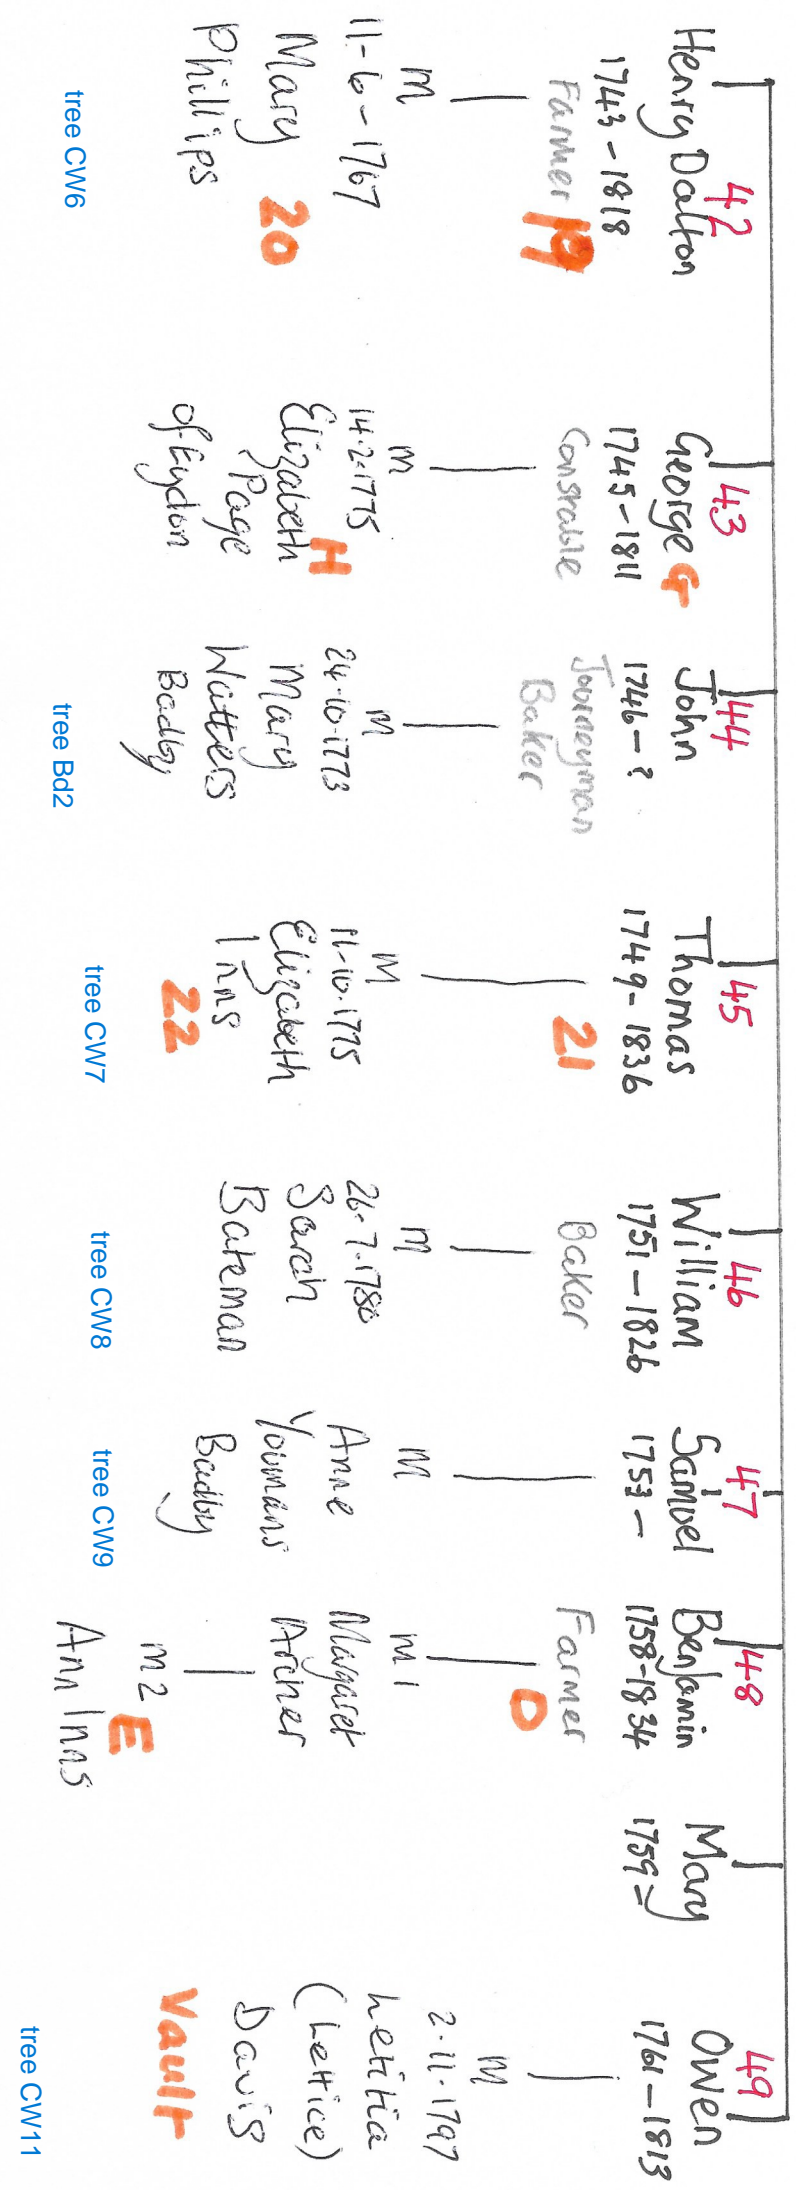 42
Henry Dalton
1743-1818
Farmer 19
M
11-6-1767
Mary
Phillips
20
tree CW6
43
George G
1745-1811
Constable
M
14.2.1775
Elizabeth H
Page
of Eydon
44
John
1746-?
Journeyman
Baker
M
24.10.1773
Mary
Watters
Badby
tree Bd2
45
Thomas
1749-1836
21
M
11-10.1775
Elizabeth
Inns
22
tree CW7
46
William
1751-1826
Baker
M
26.7.1780
Sarah
Bateman
tree CW8
47
Samuel
1753-
M
Anne
Youmans
Badby
tree CW9
48
Benjamin
1758-1834
Farmer
D
M1
Margaret
Archer
M2
E
Ann Inns
Mary
1759
49
Owen
1761-1813
M
2.11.1797
Letitia
(Lettice)
Davis
Vault
tree CW11